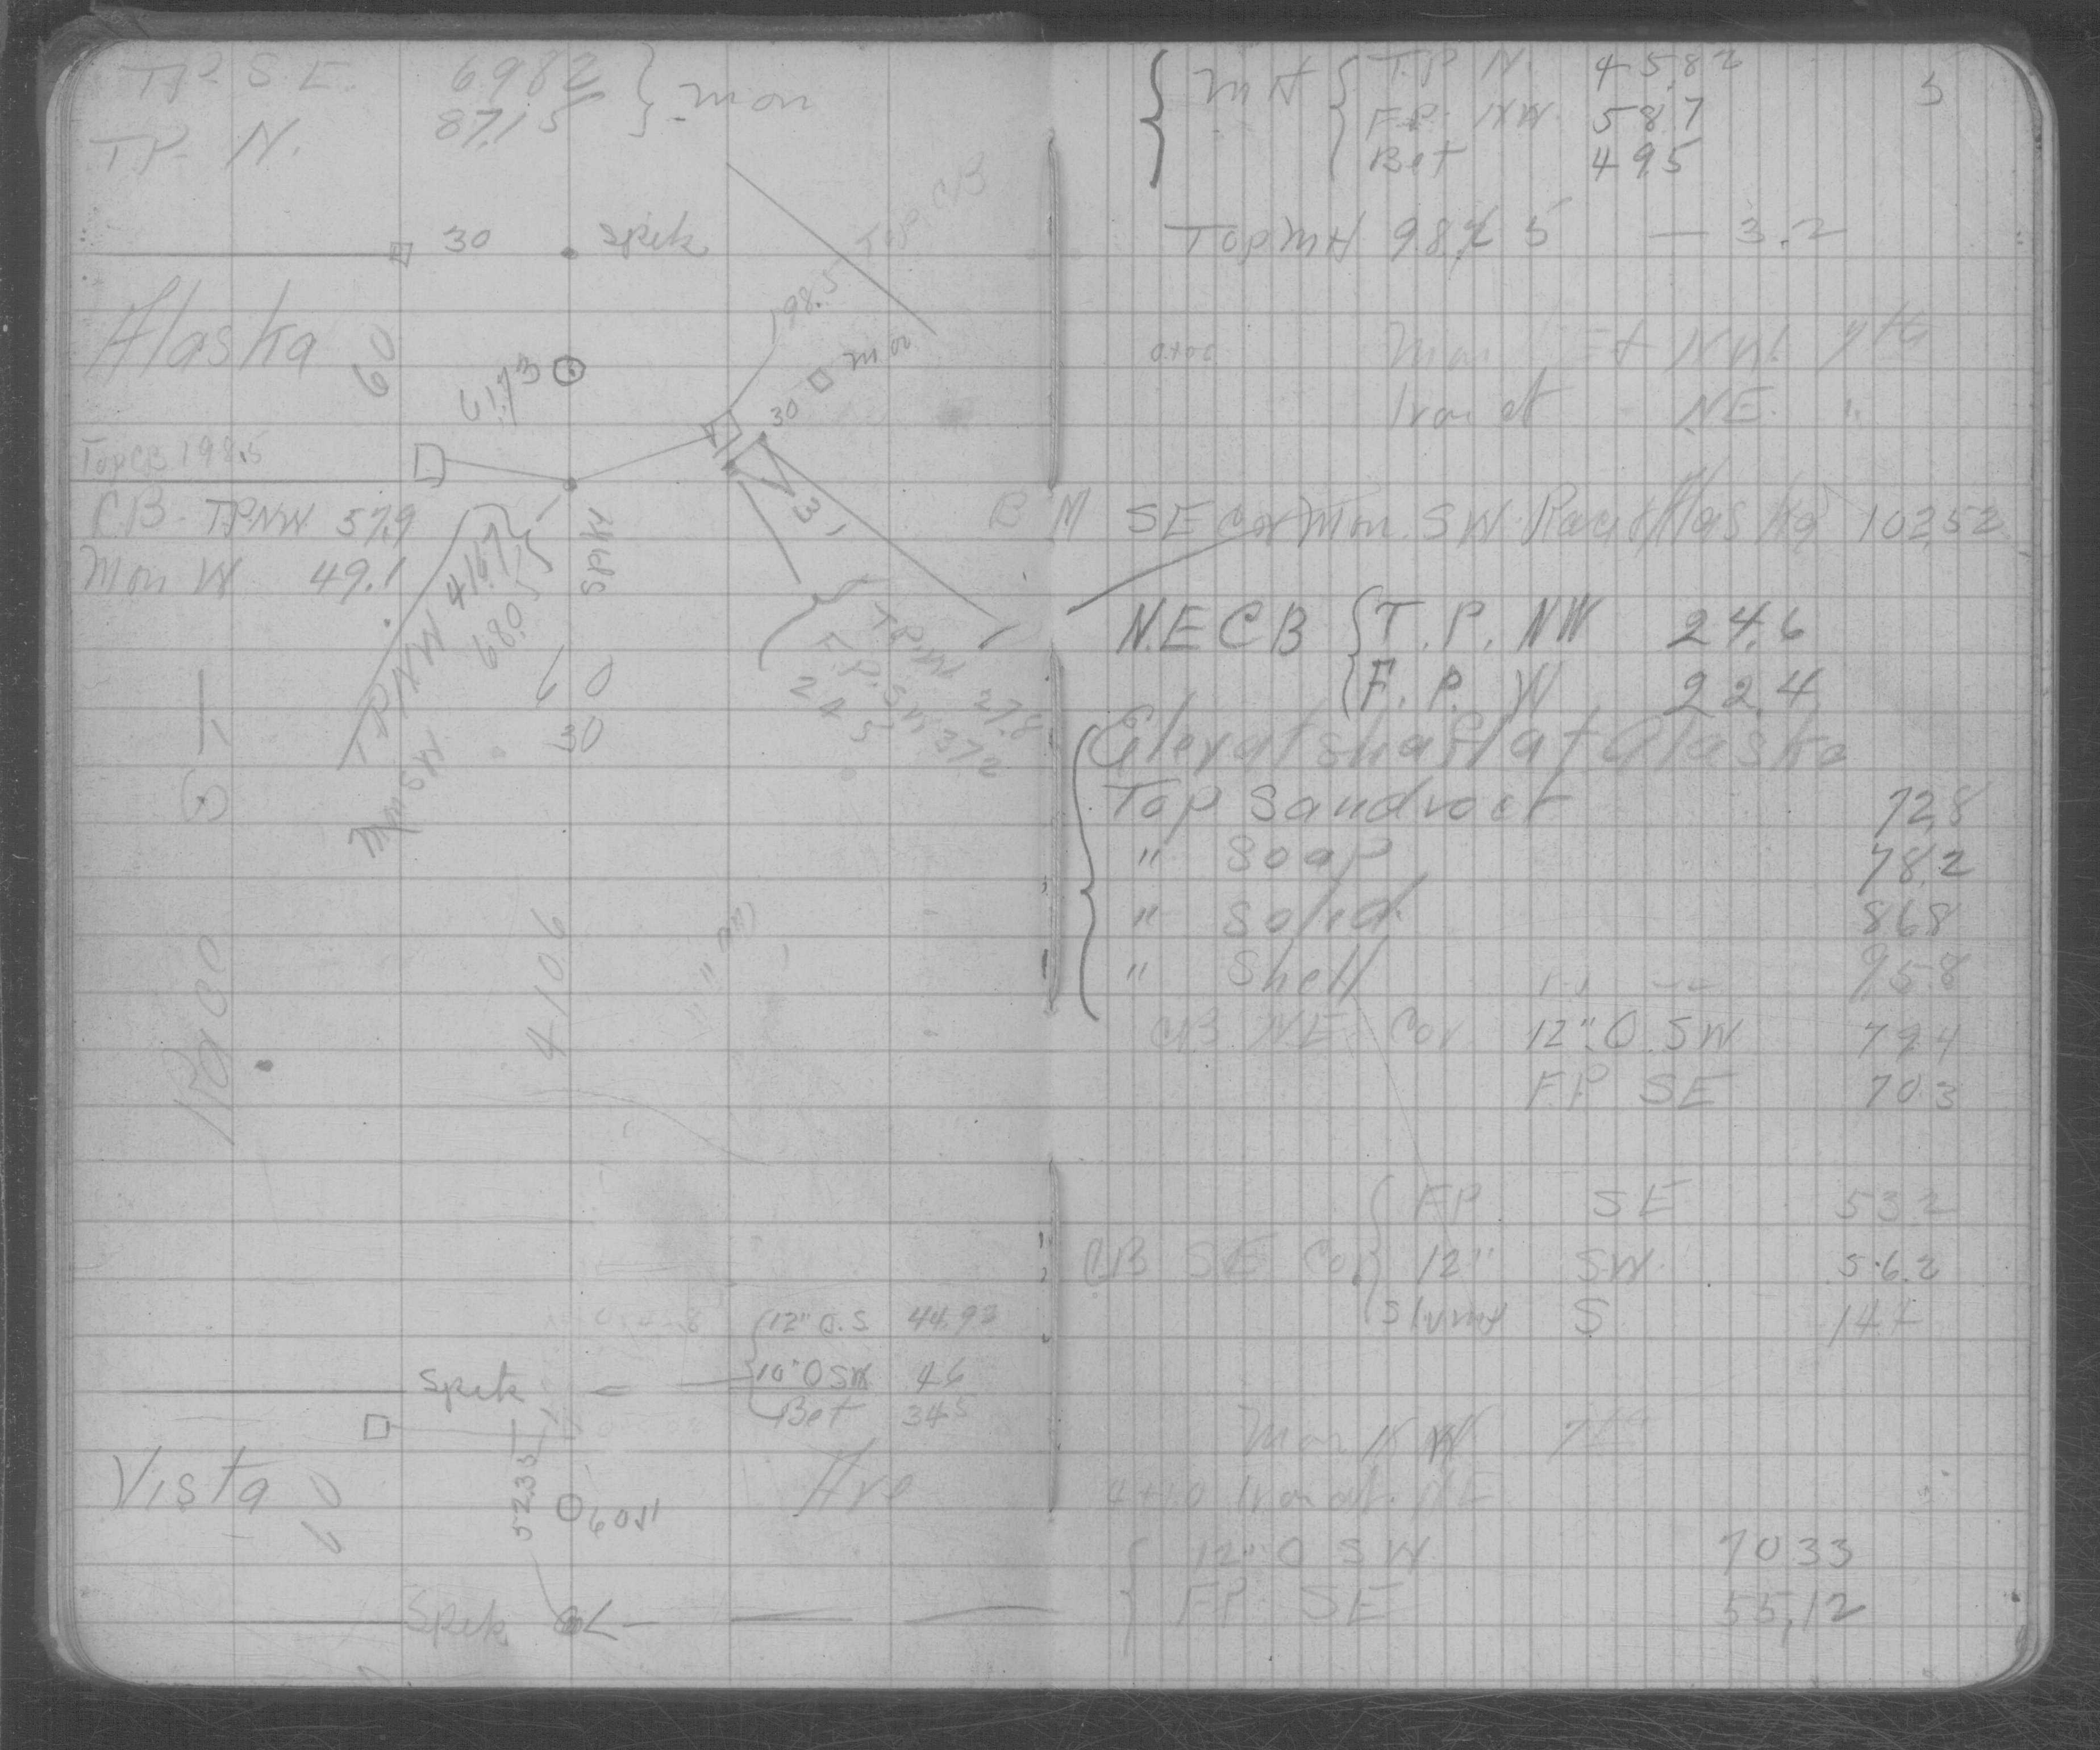 T.P. S.E. 69.82 } mon
T.P. N. 87.15
30 spik
Alaska
60
61.73
198.5 Top CB
30 mon
Top CB 198.5
CB - T.P. NW 57.9
Mon W 49.1
spik
31
T.P. NW 41.67
Mon SW 68.05
T.P. W 27.8
F.P. SW 37.2
24.5
60
30
Race
4106
12" O.S 44.92
10" O SW 46
Bet 34.5
Spik
Vista
60
52.35
60.11
Ave
Spik
5
MH { T.P. N. 45.82
F.P. NW. 58.7
Bet 49.5
Top MH 98.5 — 3.2
0+00 Mon at NW.
Iron at NE. "
B M SE cor Mon. SW. Race & Alaska 102.52
N.E C B { T. P. NW 24.6
F. P. W 22.4
Elev at shaft at Alaska
Top Sandrock 72.8
" Soap 78.2
" Solid 86.8
" Shell 95.8
CB NE Cor 12" O SW 79.4
F.P SE 70.3
FP SE 53.2
CB SE Cor { 12" SW. 56.2
S 14+
Mon NW
4+20 Iron at NE
12" O SW 70.33
FP SE 55.12